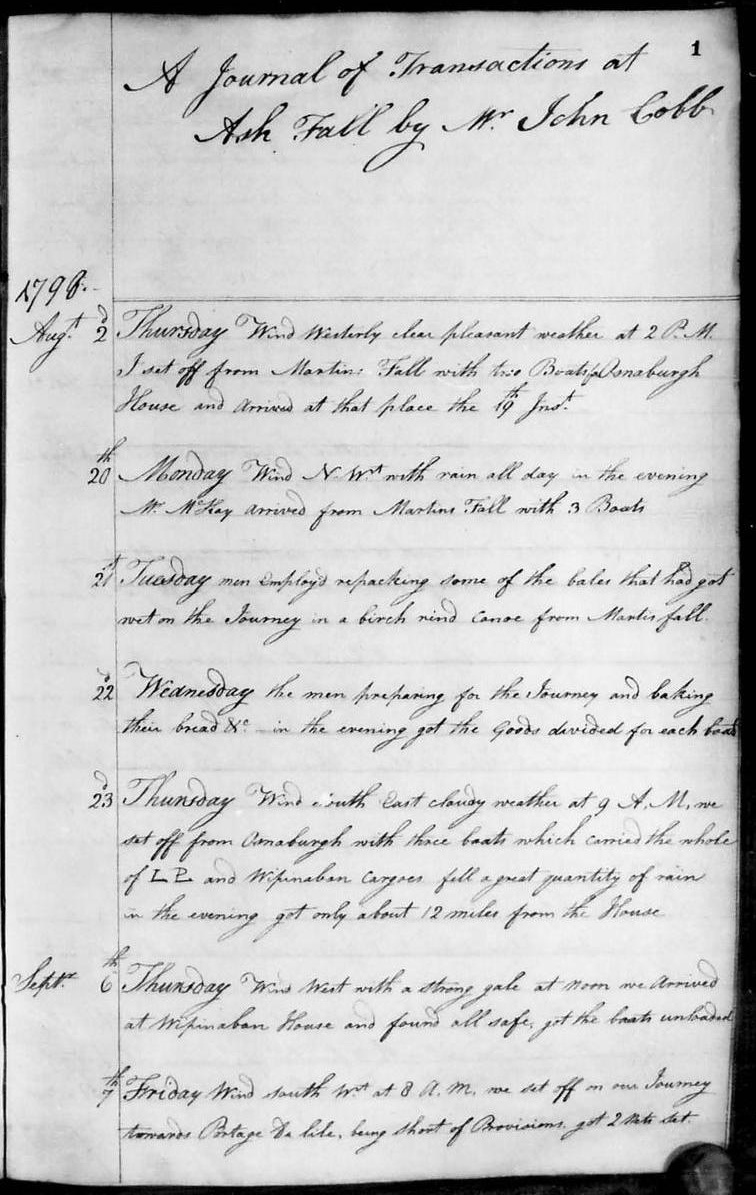 1
A Journal of Transactions at
Ash Fall by Mr. John Cobb
1798.
Augt. 2d Thursday Wind Westerly clear pleasant weather at 2 P.M.
I set off from Martins Fall with two Boats for Osnaburgh
House and Arrived at that place the 19th Inst.
20th Monday Wind N. Wt. with rain all day in the evening
Mr. McKay Arrived from Martins Fall with 3 Boats
21st Tuesday men employd repacking some of the bales that had got
wet on the Journey in a birch rind Canoe from Martis fall.
22d Wednesday the men preparing for the Journey and baking
their bread &c. in the evening got the Goods divided for each boat
23d Thursday Wind South East cloudy weather at 9 A.M. we
set off from Osnaburgh with three boats which carried the whole
of and Wipinaban Cargoes fell a great quantity of rain
in the evening got only about 12 miles from the House
Septr. 6th Thursday Wind West with a strong gale at noon we Arrived
at Wipinaban House and found all safe, got the boats unloaded
7th Friday Wind South Wt. at 8 A.M. we set off on our Journey
towards Portage De lile, being short of Provisions, got 2 Nets set.